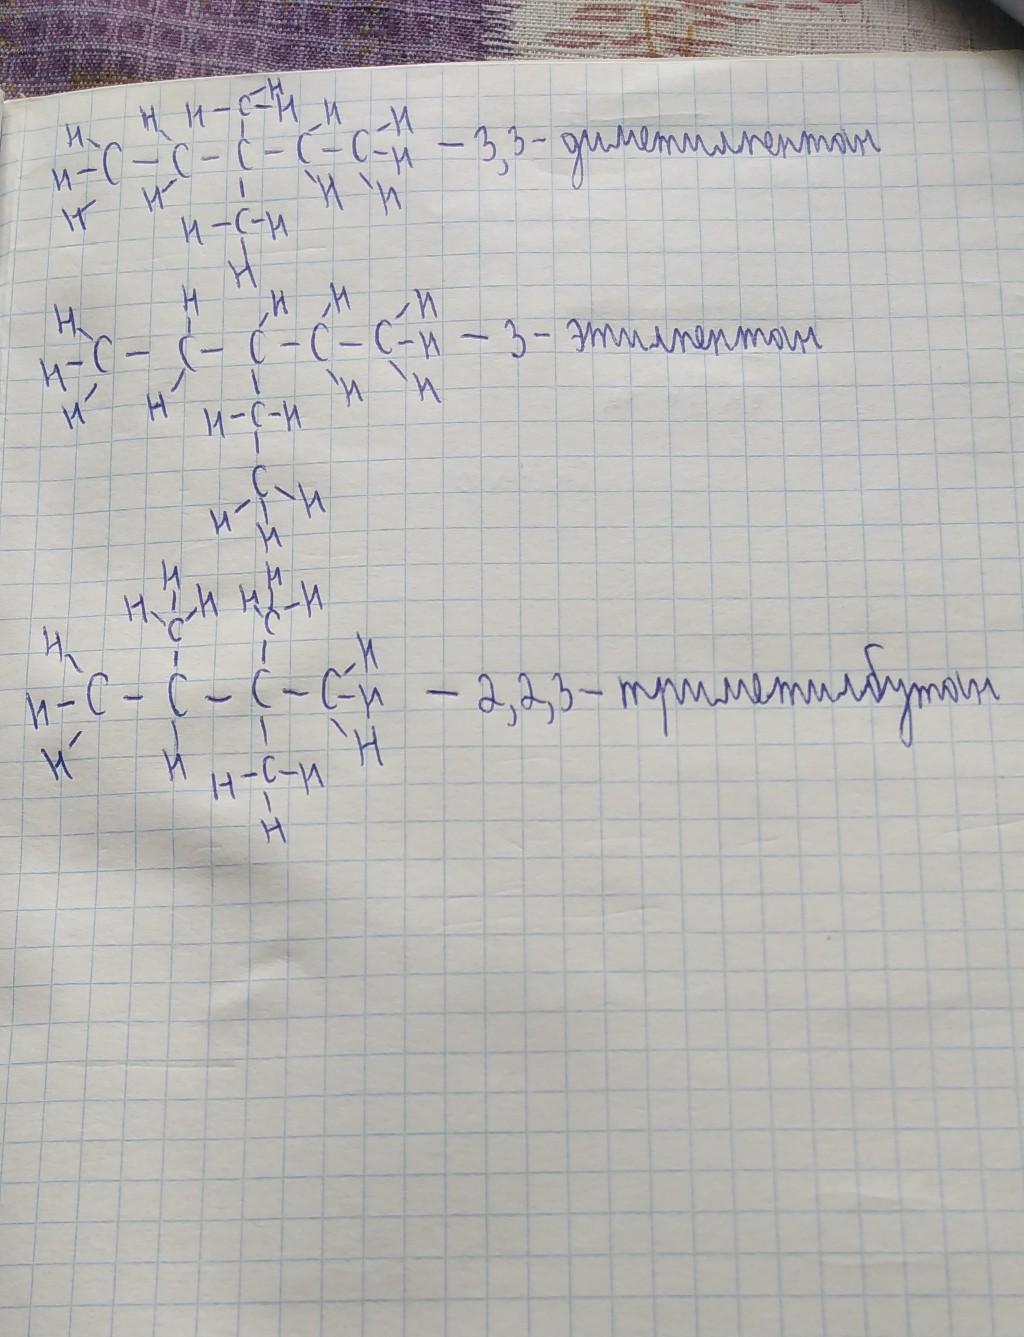 H H H-C-H H H H
H-C-C-C-C-C-H - 3,3-диметилпентан
H H H H
H-C-H
H
H H H H H
H-C-C-C-C-C-H - 3-этилпентан
H H H H
H-C-H
C
H H H
H H
H C H H C H
H H
H-C-C-C-C-H - 2,2,3-триметилбутан
H H H-C-H H
H